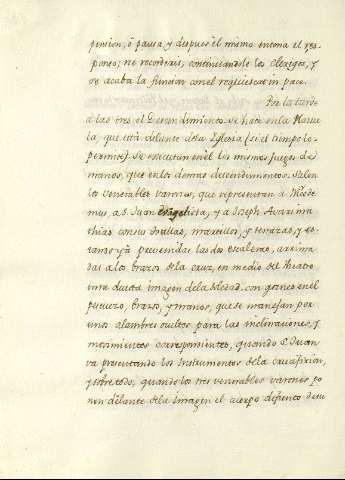 pension, ô pausa, y despues el mismo entona el res-
ponso; ne recorderis, continuandole los clerigos, y
se acaba la funcion con el requiescat in pace.
Por la tarde
a las tres, el Descendimiento se hace en la Plazue
la, que está delante de la Iglesia (si el tiempo lo
permite). Se executan en èl los mismos juegos de
manos, que en los demas descendimientos. Salen
los venerables varones, que representan a Nicode
mus, a S. Juan Evangelista, y a Joseph Avarima
thias con sus toallas, martillos, y tenazas, y es-
tando yà prevenidas las dos escaleras, arrima
das a los brazos de la cruz, en medio del theatro
una devota imagen de la Soledad, con gonces en el
pescuezo, brazos, y manos, que se manejan por
unos alambres ocultos para las inclinaciones, y
movimientos correspondientes, quando S. Juan
va presentando los Instrumentos de la crucifixion,
y sobre todo, quando los tres venerables varones po
nen delante de la Imagen el cuerpo difunto de su